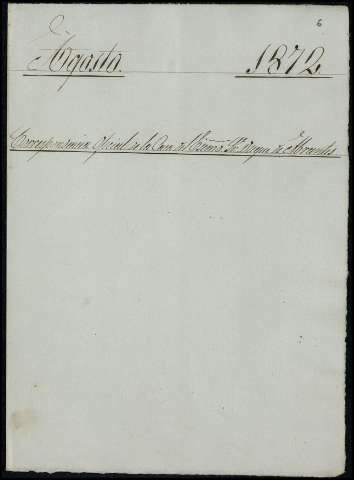 6
Agosto. 1872
Correspondencia Oficial de la Casa del Excmo. Sr. Duque de Abrantes